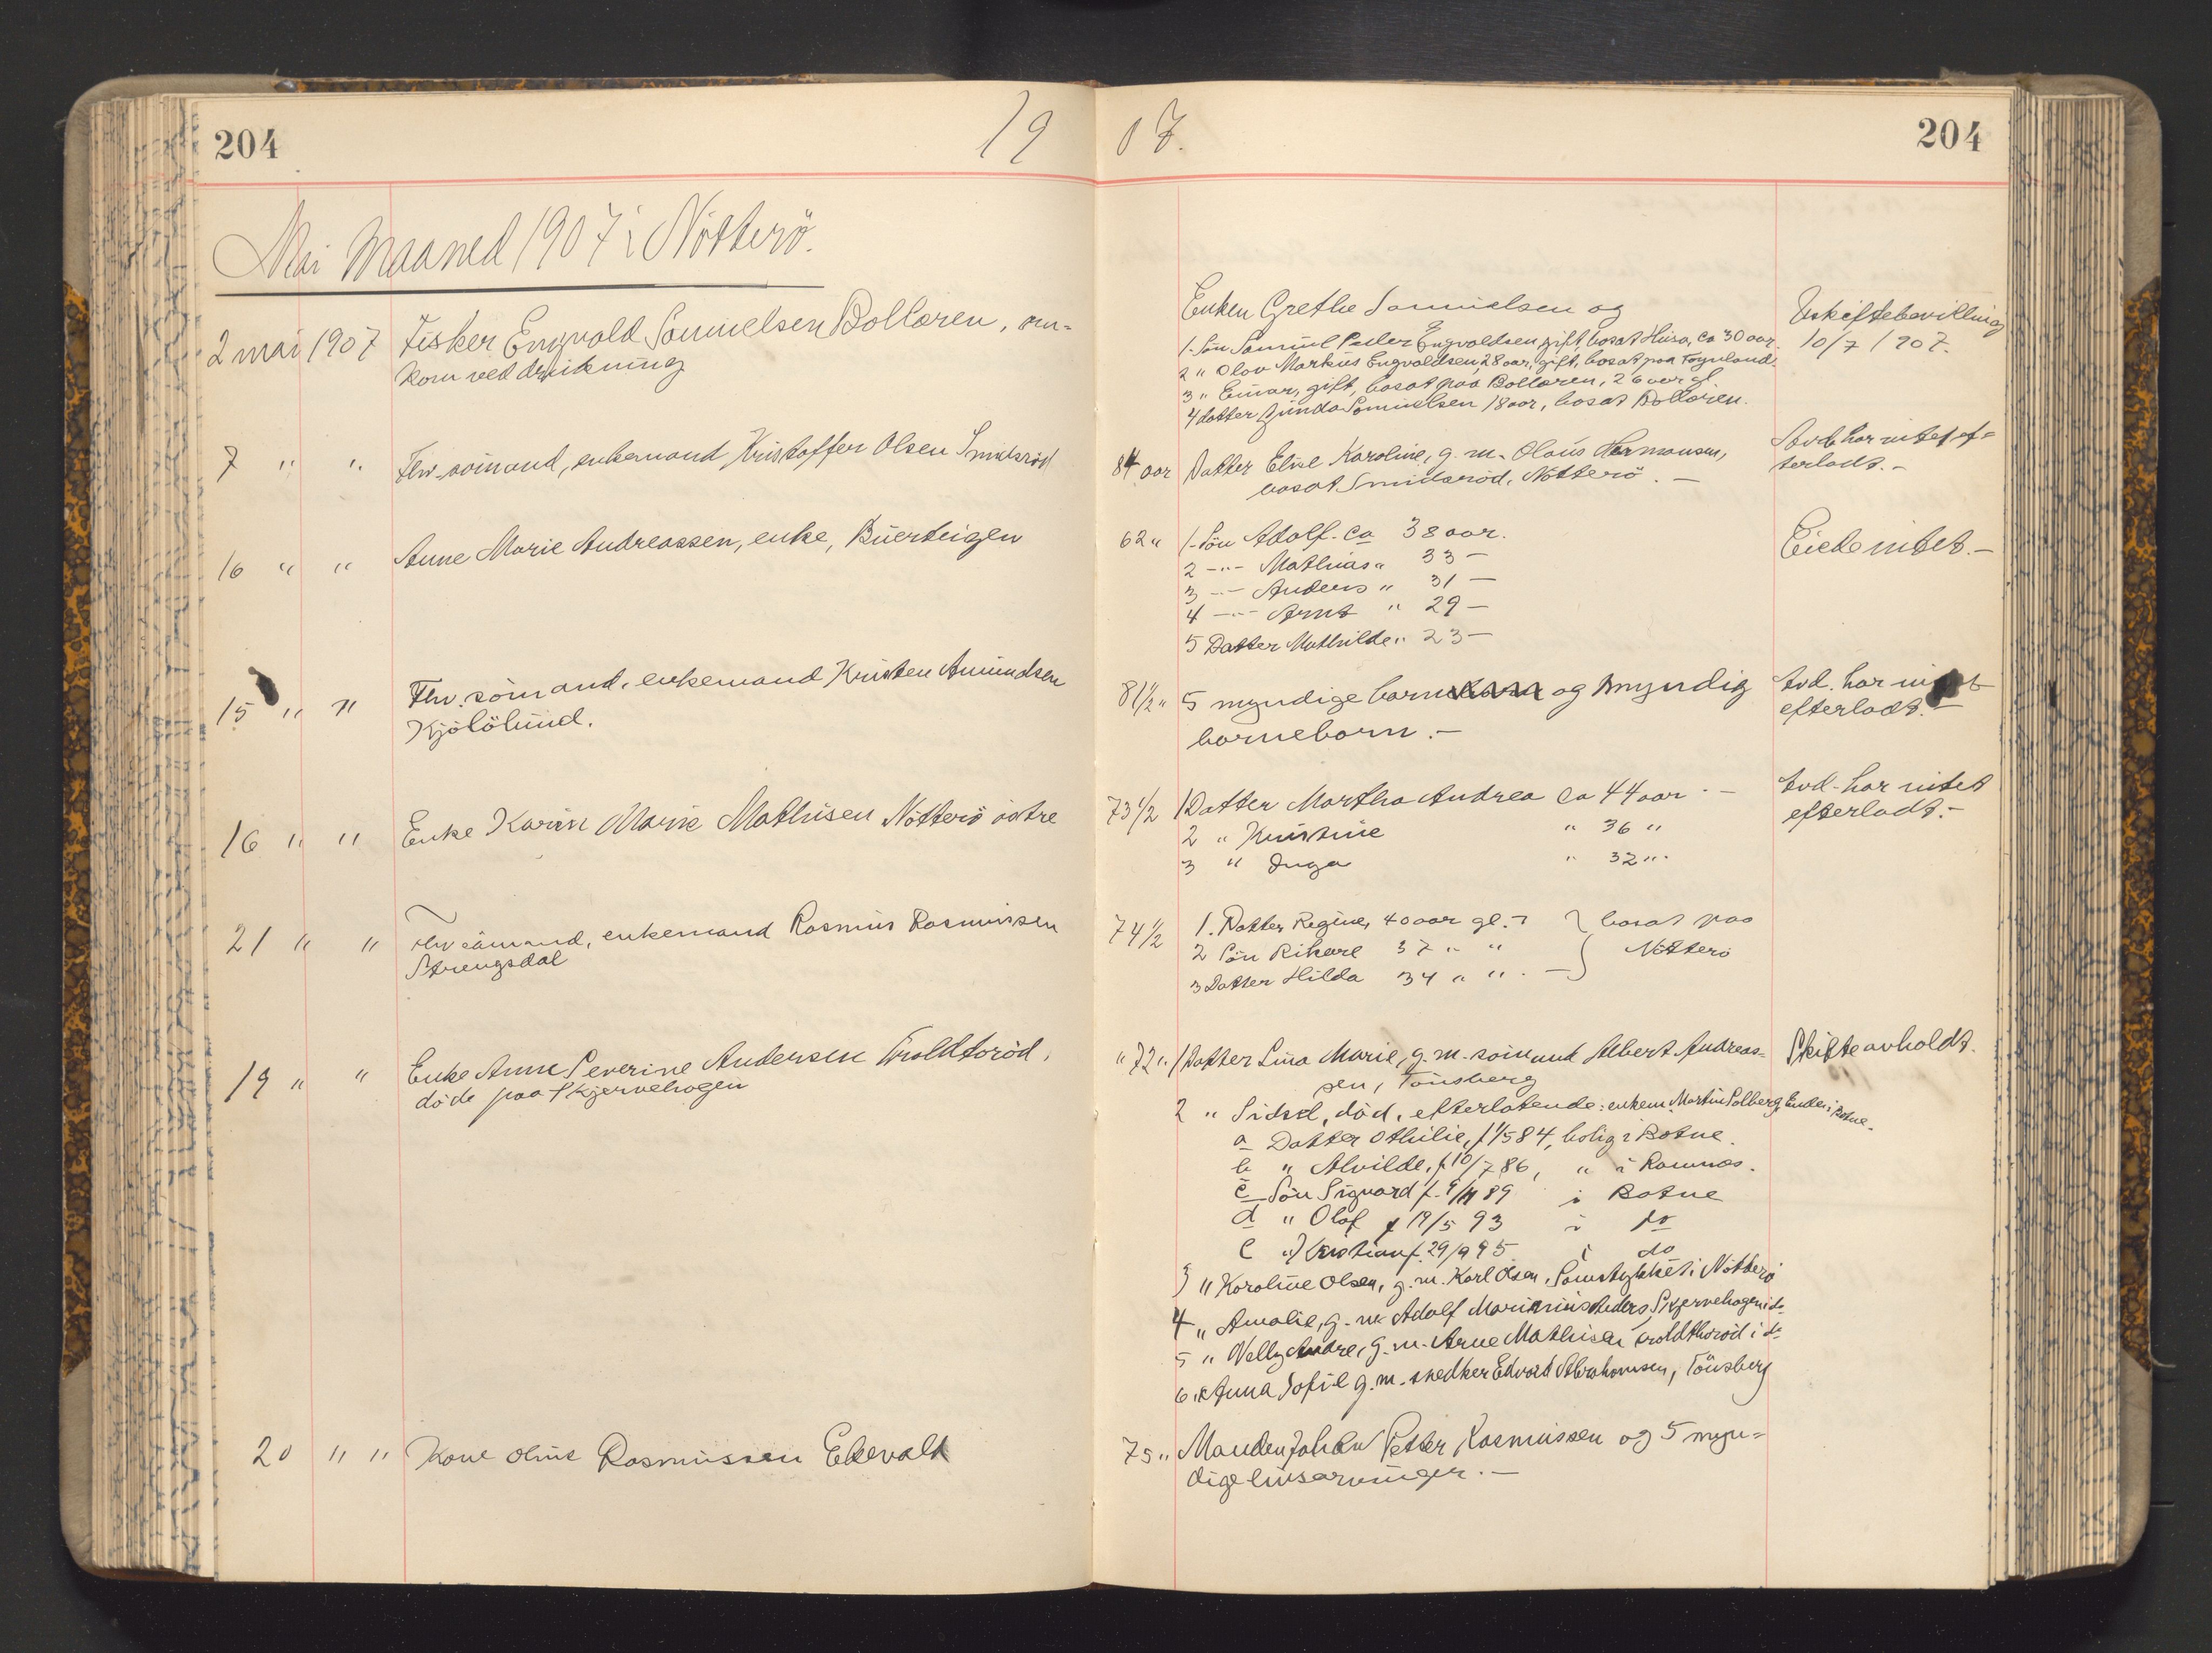 204
1907.
204
Mai Maaned 1907 i Nötterö.
2 mai 1907
Fisker Engvald Samuelsen Bollæren, om-
kom ved drukning
Enken Grethe Samuelsen og
1. Sön Samuel Peder Engvoldsen, gift, bosat Husø, ca 30 aar.
2 " Olav Markus Engvaldsen, 28 aar, gift, bosat paa Føynland
3 " Einar, gift, bosat paa Bollæren, 26 aar gl.
4 datter Gunda Samuelsen 18 aar, bosat Bollæren.
Uskiftebevilling
10/7 1907.
7 " "
Fhv. sömand, enkemand Kristoffer Olsen Smidsröd
84 aar
Datter Elise Karoline, g. m. Olaus Hermansen,
bosat Smidsröd, Nötterö. –
Avd. har intet ef-
terladt. –
16 " "
Anne Marie Andreassen, enke, Buerteigen
62 "
1. Sön Adolf ca 38 aar.
2 –"– Mathias " 33 –
3 –"– Anders " 31 –
4 –"– Arnt " 29 –
5 Datter Mathilde " 23 –
Eiede intet. –
15 " "
Fhv. sömand, enkemand Kristen Amundsen
Kjölölund.
81½ "
5 myndige barn og myndig
barnebarn. –
Avd. har intet
efterladt. –
16 " "
Enke Karen Marie Mathisen Nötterö östre
73½
1 Datter Martha Andrea ca 44 aar. –
2 " Kristine " 36 "
3 " Inga " 32 ".
Avd. har intet
efterladt. –
21 " "
Fhv sömand, enkemand Rasmus Rasmussen
Strengsdal
74½
1. Datter Regine, 40 aar gl. bosat paa
2 Sön Rikard 37 " " Nötterö
3 Datter Hilda 34 " ". –
19 " "
Enke Anne Severine Andersen Troldtoröd,
döde paa Skjervehagen
" 72 "
1 Datter Lina Marie, g. m. sömand Albert Andreas-
sen, Tönsberg
2 " Sidsel, död, efterlatende: enkem. Martin Solberg, i Botne.
a Datter Othilie, f 1/5 84, bolig i Botne.
b " Alvilde, f. 10/7 86, " i Ramnæs.
c Sön Sigvard f. 9/11 89 i Botne
d " Olaf f 19/5 93 i do
e " Kristian f. 29/9 95 i do
3 " Karoline Olsen, g. m. Karl Olsen, Samstykket i Nötterö
4 " Amalie, g. m. Adolf Marinius Anders, Skjervehagen i do
5 " Nelly Andre, g. m. Arne Mathisen Troldthoröd i do
6 " Anna Sofie g. m. snedker Edvard Abrahamsen, Tönsberg
Skifte avholdt.
20 " "
Kone Oline Rasmussen Ekevald
75 "
Manden Johan Petter Rasmussen og 5 myn-
dige livsarvinger. –